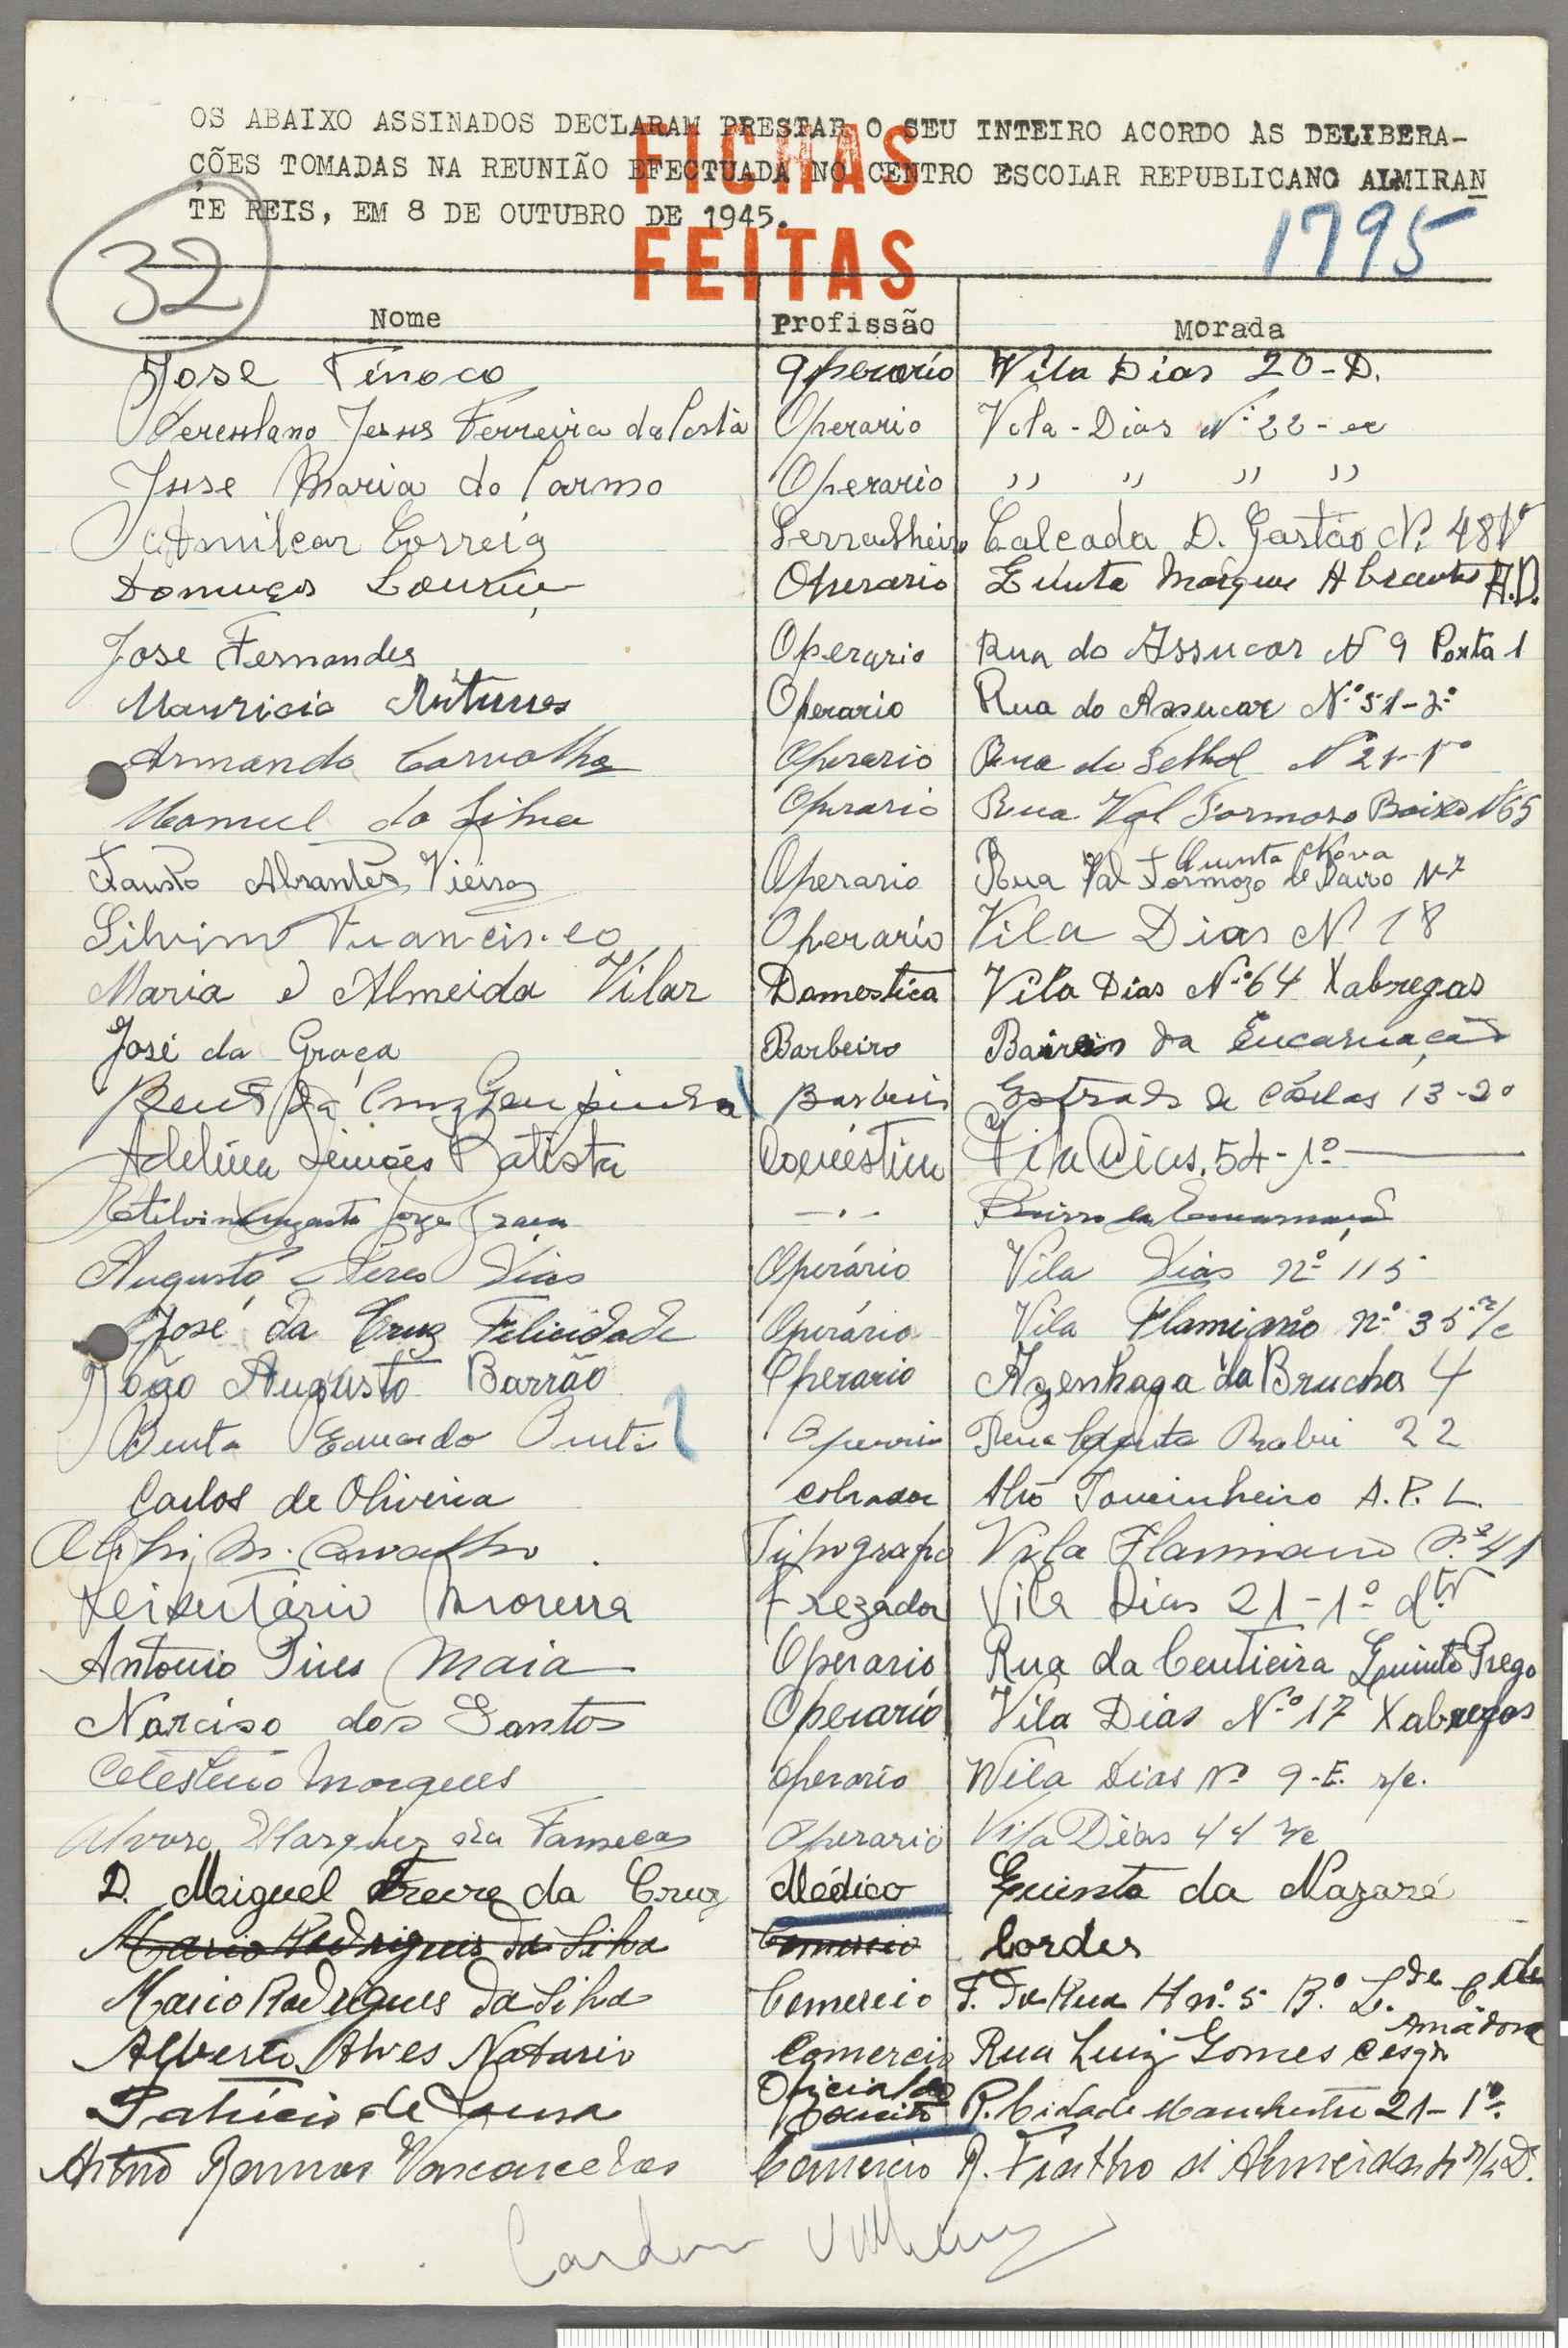 OS ABAIXO ASSINADOS DECLARAM PRESTAR O SEU INTEIRO ACORDO AS DELIBERA-
ÇÕES TOMADAS NA REUNIÃO EFECTUADA NO CENTRO ESCOLAR REPUBLICANO ALMIRAN
TE REIS, EM 8 DE OUTUBRO DE 1945.
FICHAS
FEITAS
32
1795
Nome Profissão Morada
Jose Tinoco Operario Vila Dias 20-D.
Jesus Ferreira da Costa Operario Vila-Dias Nº 22-
Jose Maria do Carmo Operario ,, ,, ,, ,,
Amilcar Correia Serralheiro Calcada D. Gastão Nº 48
Domingos Operario Quinta Marques Abrantes A.D.
Jose Fernandes Operario Rua do Assucar N 9 Porta 1
Mauricio Antunes Operario Rua do Assucar Nº 51-2º
Armando Carvalho Operario Rua do N 21-1º
Manuel da Silva Operario Rua Val Formoso Baixo 165
Fausto Abrantes Vieira Operario Rua Val Formozo de Baixo Quinta Nova Nº 7
Silvino Francisco Operario Vila Dias Nº 18
Maria d Almeida Vilar Domestica Vila Dias Nº 64 Xabregas
José da Graça Barbeiro Bairro da Encarnação
da Cruz Barbeiro Estrada de Chelas 13-2º
Adelina Simões Batista Doméstica Vila Dias, 54-1º
Augusto Jorge Graça -.- Bairro da Encarnação
Augusto Pires Dias Operário Vila Dias nº 115
José da Cruz Felicidade Operário Vila Flamiano nº 35 r/c
João Augusto Barrão Operario Azenhaga da Brucha 4
Eduardo Operario Rua 22
Carlos de Oliveira Cobrador Alto Toucinheiro A.P.L.
M. Carvalho Tipografo Vila Flamiano Nº 41
Moreira Frezador Vila Dias 21-1º dtº
Antonio Pires Maia Operario Rua da Centieira Quinta Prego
Narciso dos Santos Operario Vila Dias Nº 17 Xabregas
Celestino Marques Operario Vila Dias Nº 9-E. r/c.
Alvaro Marques da Fonseca Operario Vila Dias 44 r/c
D. Miguel Freire da Cruz Médico Quinta da Nazaré
Mario Rodrigues da Silva Comercio Cordes
Mario Rodrigues da Silva Comercio F. da Rua H nº 5 B.º
Alberto Alves Natario Comercio Rua Luiz Gomes Amadora
Patricio de Sousa Oficial do Exercito R. Cidade Manchester 21-1º
Artur Ramos Vasconcelos Comercio R. Fialho d'Almeida r/c D.